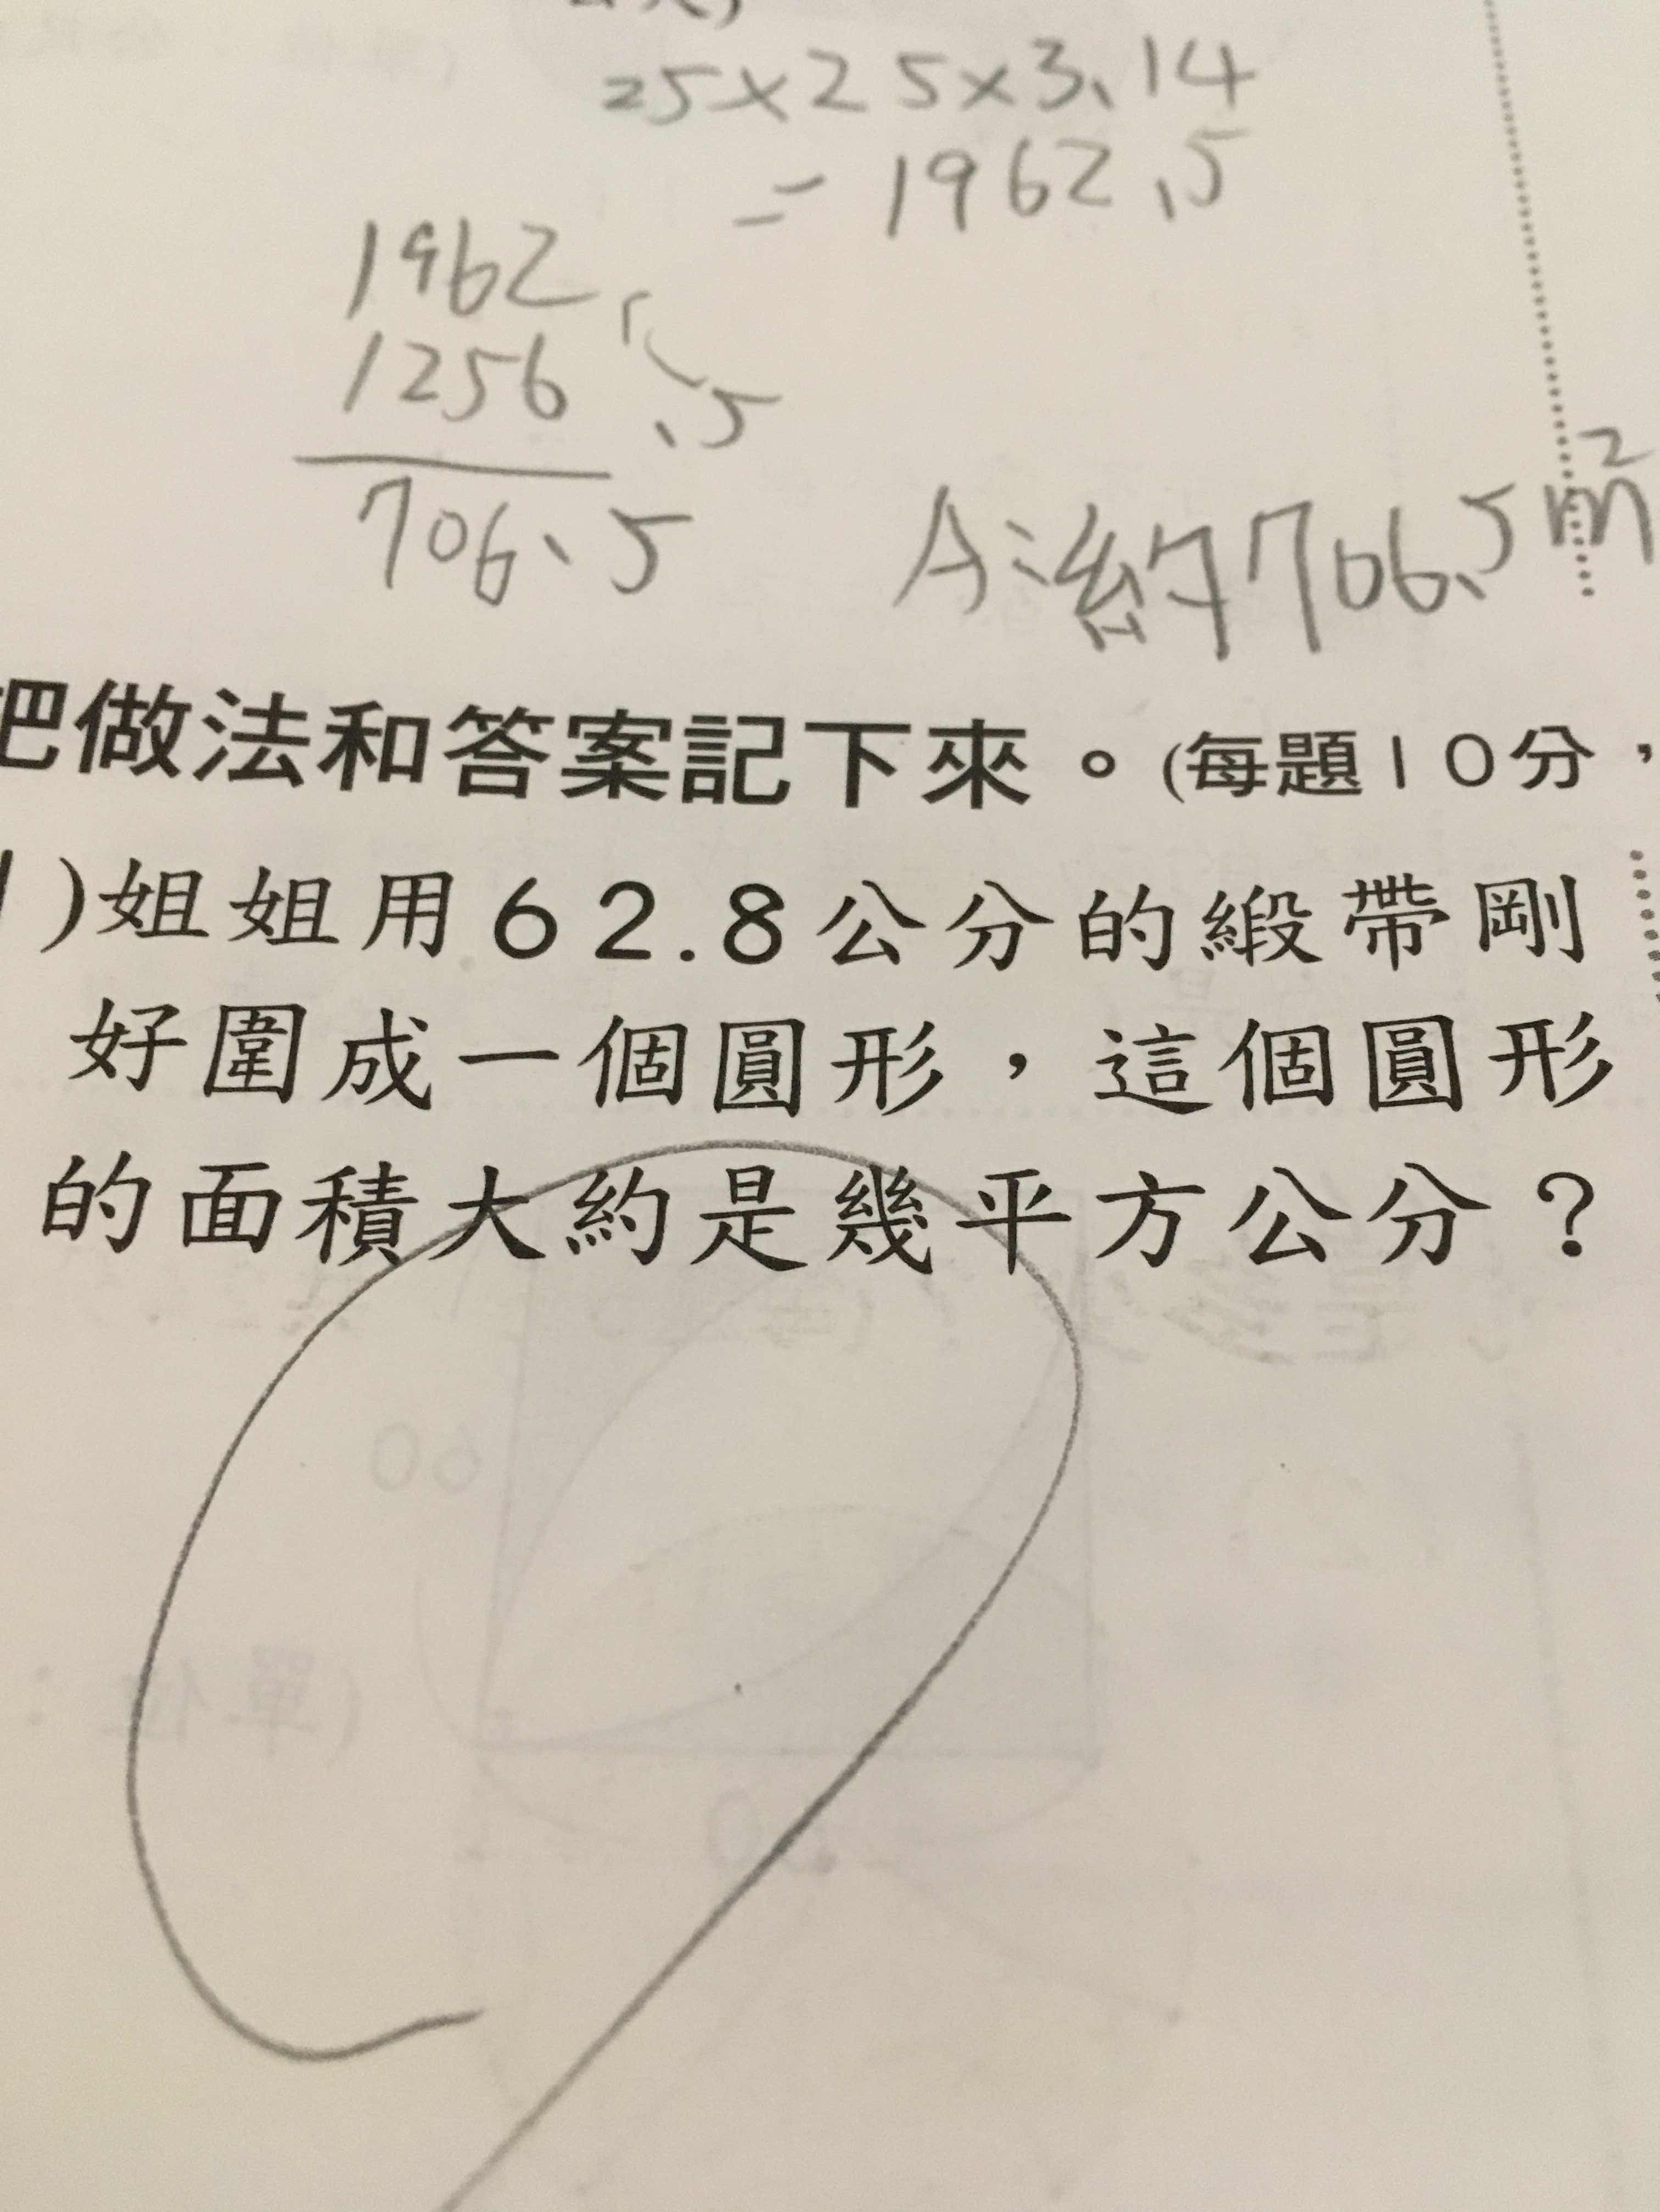 25×25×3.14
=1962.5
1962
1256 .5
706.5
A:約706.5m²
把做法和答案記下來。(每題10分，
1)姐姐用62.8公分的緞帶剛
好圍成一個圓形，這個圓形
的面積大約是幾平方公分？